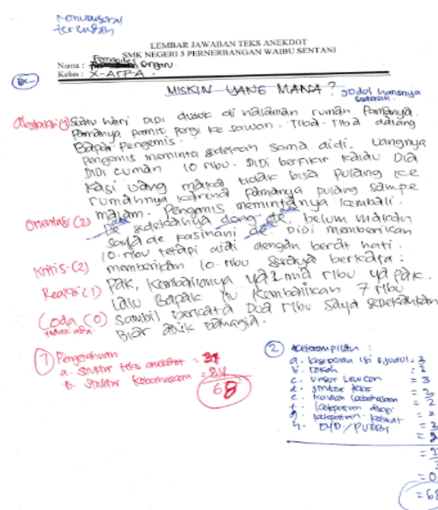 LEMBAR JAWABAN TEKS ANEKDOT
SMK NEGERI 5 PERNERBANGAN WAIBU SENTANI
Nama : Organ
Kelas : X-ATP-A
MISKIN YANG MANA ?
Judul harusnya
Suatu hari DIDI duduk di halaman rumah Pamanya.
Pamanya pamit pergi ke sawah. Tiba-tiba datang
Bapak Pengemis.
pengemis meminta sedekah sama didi. uangnya
DIDI cuman 10 ribu. DIDI berfikir kalau Dia
Kasi uang maka tidak bisa pulang ke
rumahnya karena pamanya pulang sampe
malam. Pengemis memintanya kembali.
Orientasi (2)
sedekahnya dong de, belum makan
saya de kasihani de. DIDI memberikan
10 ribu tetapi didi dengan berat hati.
Krisis (2) memberikan 10 ribu seraya berkata :
Reaksi (1) Pak, Kembaliannya ribu ya Pak.
lalu Bapak itu Kembalikan 7 ribu
Coda (0) sambil berkata Dua ribu saya sedekahkan
Biar adik bahagia.
1 Pengetahuan
a. struktur teks anekdot = 34
b. struktur kebahasaan = 34
68
2 Keterampilan :
a. kesesuaian isi & judul = 3
b. tokoh = 2
c. unsur Lelucon = 3
d. struktur teks = 2
e. kaidah kebahasaan = 2
f. ketepatan diksi = 2
g. ketepatan kalimat
h. EYD/PUEBI
= 68